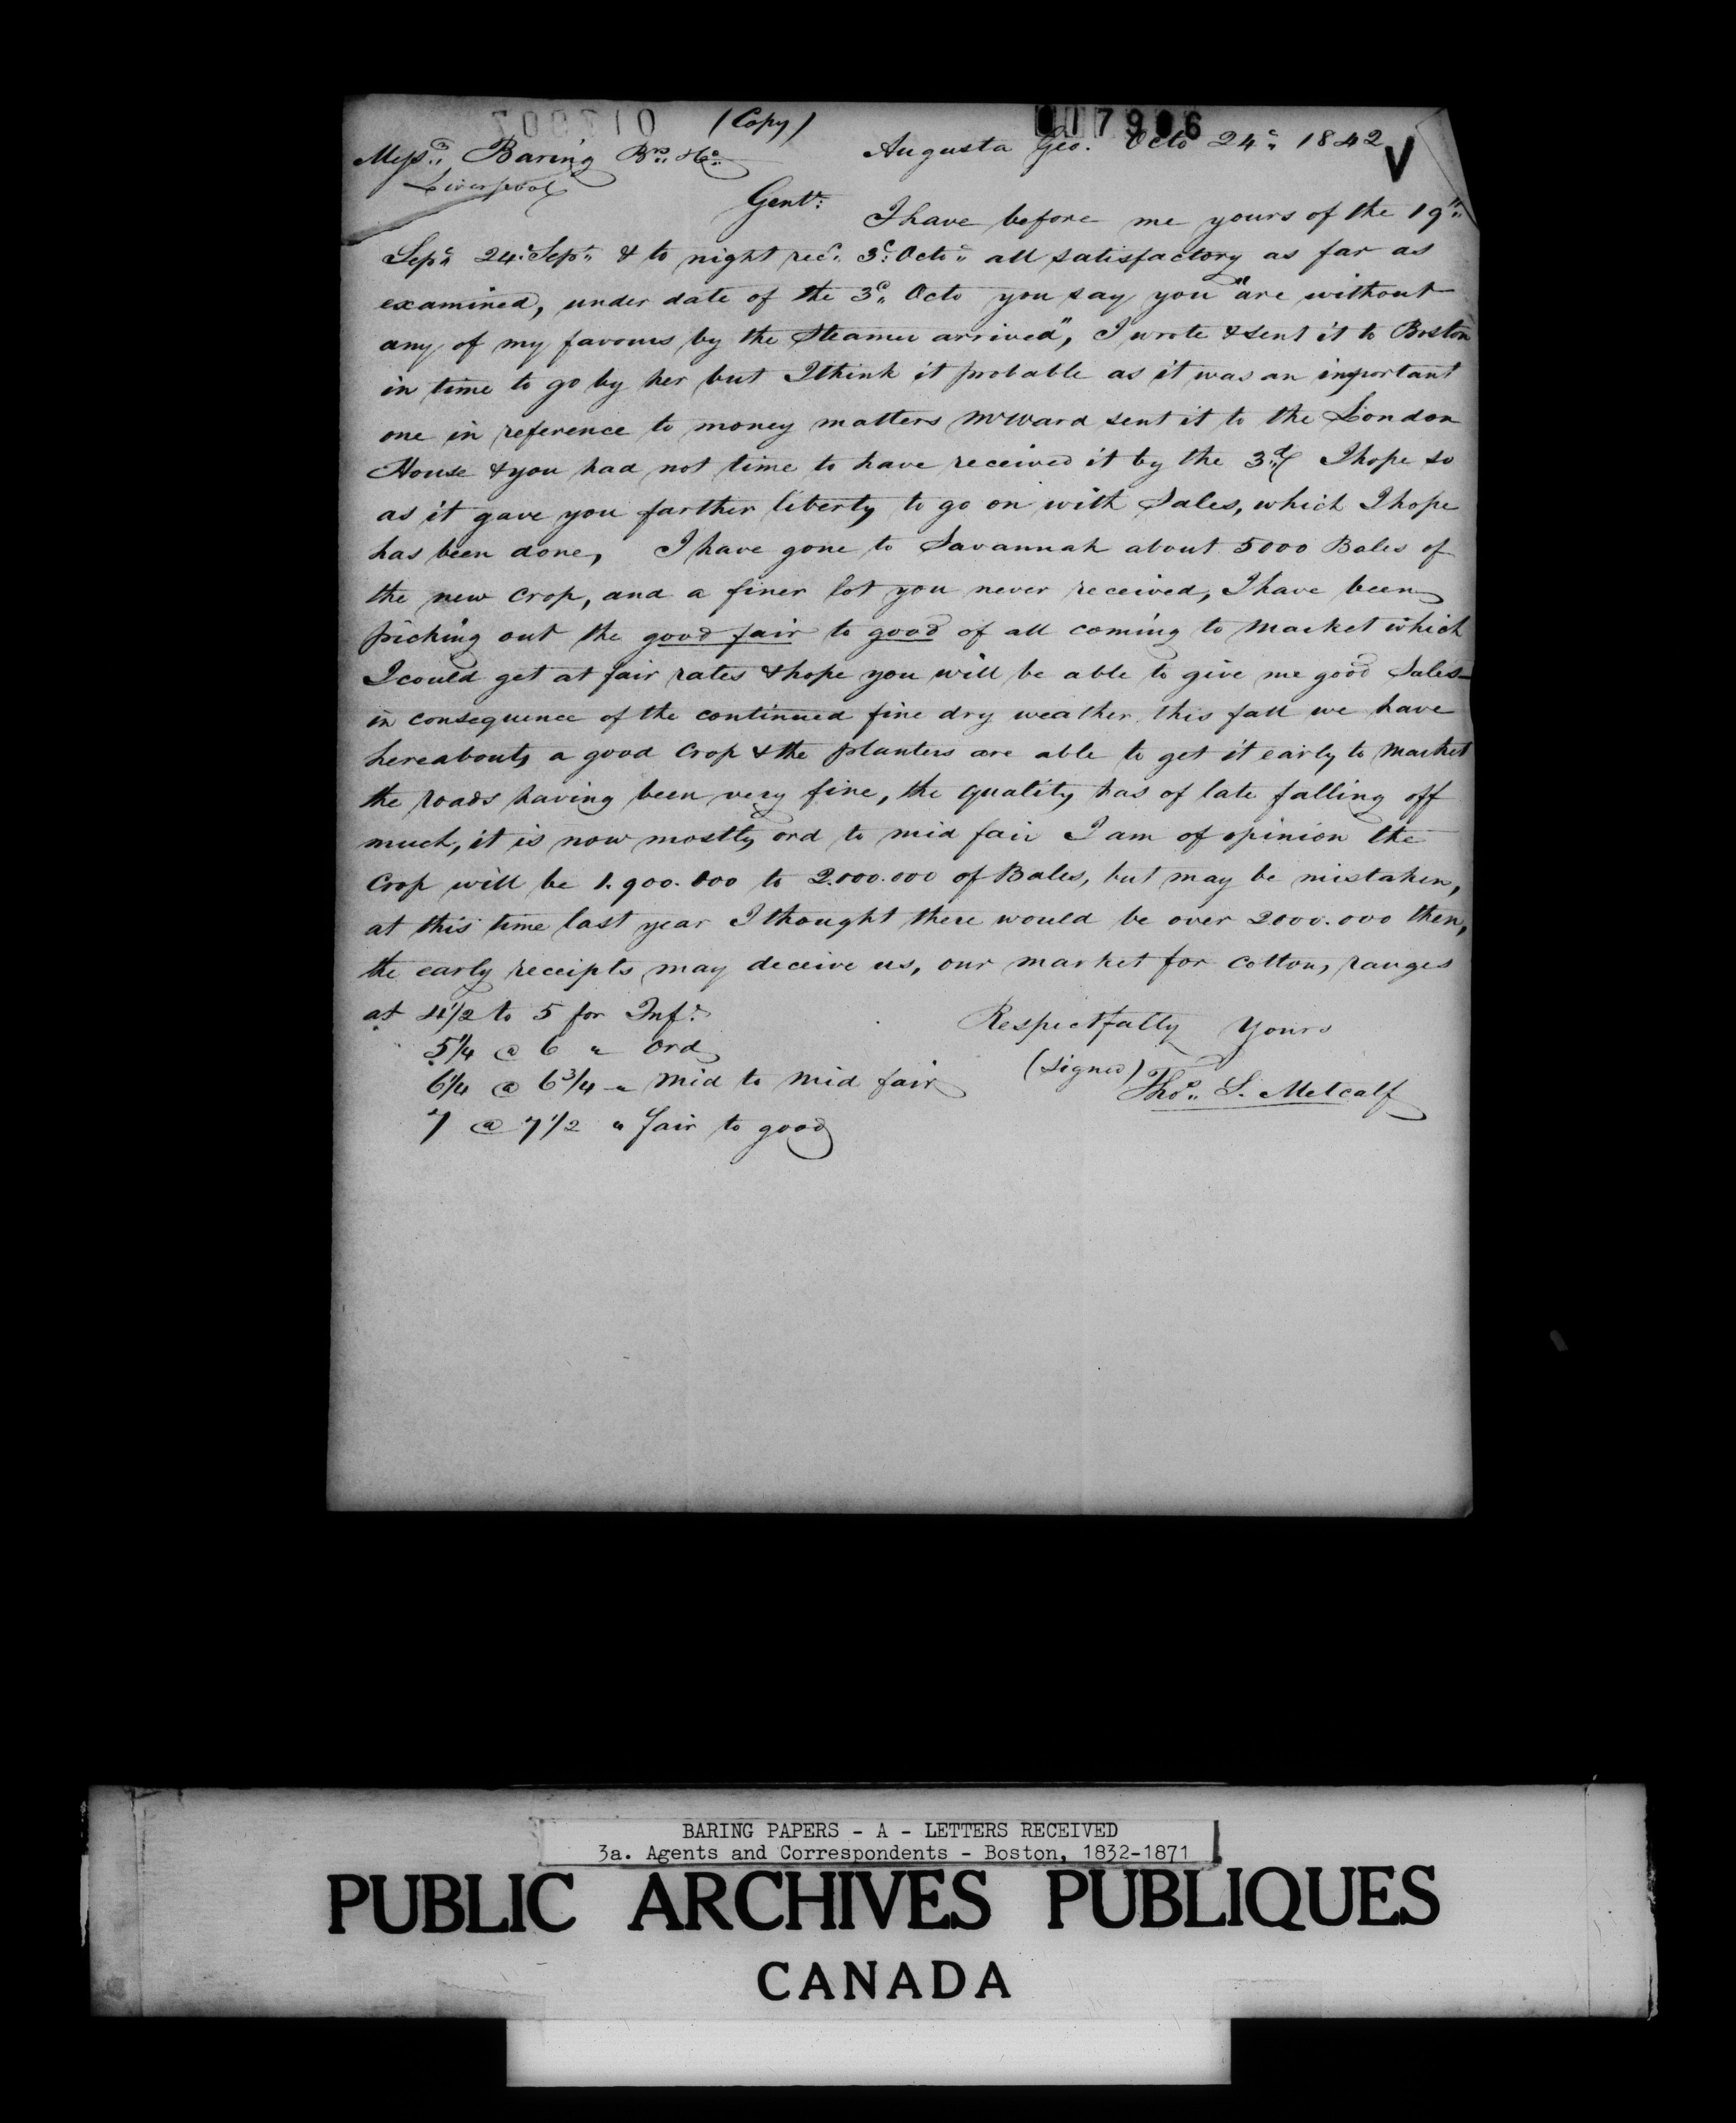 (Copy)
017906
Augusta Geo. Octo 24" 1842
Messrs Baring Bros & Co
Liverpool
Gentn:
I have before me yours of the 19"
Sepr 24 Sepr & to night recd 3d Octo all satisfactory as far as
examined, under date of the 3d Octo you say you "are without
any of my favours by the Steamer arrived", I wrote & sent it to Boston
in time to go by her but I think it probable as it was an important
one in reference to money matters Mr Ward sent it to the London
House & you had not time to have received it by the 3rd I hope so
as it gave you farther liberty to go on with Sales, which I hope
has been done, I have gone to Savannah about 5000 Bales of
the new Crop, and a finer lot you never received, I have been
picking out the good fair to good of all coming to Market which
I could get at fair rates & hope you will be able to give me good Sales
in consequence of the continued fine dry weather this fall we have
hereabouts a good Crop & the planters are able to get it early to Market
the roads having been very fine, the quality has of late falling off
much, it is now mostly ord to mid fair I am of opinion the
Crop will be 1.900.000 to 2.000.000 of Bales, but may be mistaken,
at this time last year I thought there would be over 2000.000 then,
the early receipts may deceive us, our market for Cotton, ranges
at 4 1/2 to 5 for Infr
5 1/4 @ 6 " Ord
6 1/4 @ 6 3/4 " Mid to Mid fair
7 @ 7 1/2 " fair to good
Respectfully Yours
(Signed) Thos. S. Metcalf
BARING PAPERS - A - LETTERS RECEIVED
3a. Agents and Correspondents - Boston, 1832-1871
PUBLIC ARCHIVES PUBLIQUES
CANADA